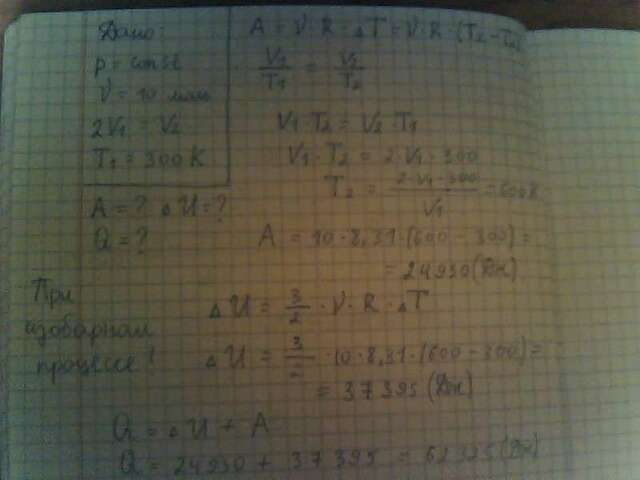 Дано:
p = const
ν = 10 моль
2V₁ = V₂
T₁ = 300 K
A = ? ΔU = ?
Q = ?
A = ν · R · ΔT = ν · R · (T₂ - T₁)
V₁/T₁ = V₂/T₂
V₁ · T₂ = V₂ · T₁
V₁ · T₂ = 2 · V₁ · 300
T₂ = 2 · V₁ · 300 / V₁ = 600 K
A = 10 · 8,31 · (600 - 300) =
= 24930 (Дж)
При
изобарном
процессе!
ΔU = 3/2 · ν · R · ΔT
ΔU = 3/2 · 10 · 8,31 · (600 - 300) =
= 37395 (Дж)
Q = ΔU + A
Q = 24930 + 37395 = 62325 (Дж)